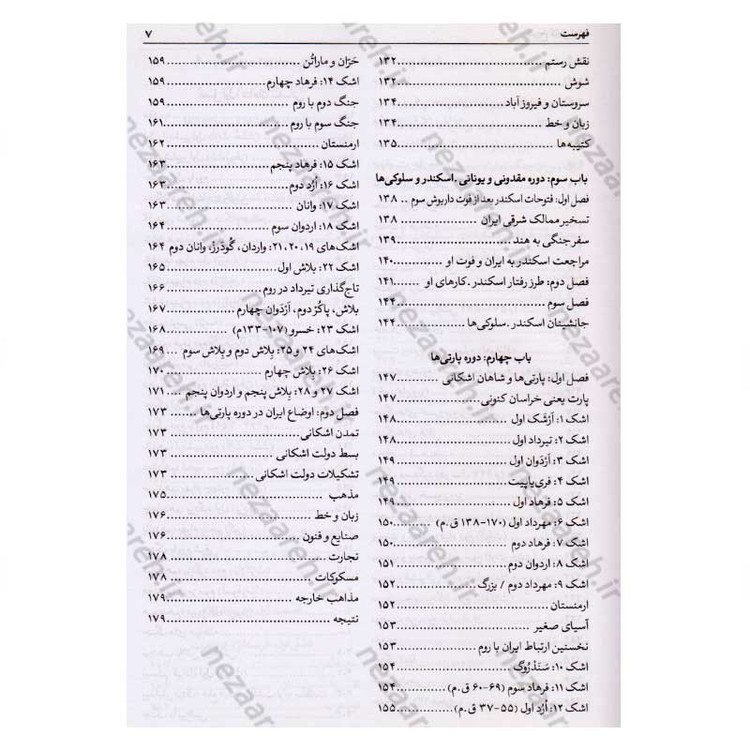 فهرست ۷
نقش رستم ۱۳۲
شوش ۱۳۲
سروستان و فیروز آباد ۱۳۴
زبان و خط ۱۳۴
کتیبه‌ها ۱۳۵
باب سوم: دوره مقدونی و یونانی .اسکندر و سلوکی‌ها
فصل اول: فتوحات اسکندر بعد از فوت داریوش سوم .. ۱۳۸
تسخیر ممالک شرقی ایران ۱۳۸
سفر جنگی به هند ۱۳۹
مراجعت اسکندر به ایران و فوت او ۱۴۰
فصل دوم: طرز رفتار اسکندر .کارهای او ۱۴۱
فصل سوم ۱۴۴
جانشینان اسکندر .سلوکی‌ها ۱۴۴
باب چهارم: دوره پارتی‌ها
فصل اول: پارتی‌ها و شاهان اشکانی ۱۴۷
پارت یعنی خراسان کنونی ۱۴۷
اشک ۱: اَرْشک اول ۱۴۸
اشک ۲: تیرداد اول ۱۴۸
اشک ۳: اَرْدَوان اول ۱۴۹
اشک ۴: فری‌یاپیت ۱۴۹
اشک ۵: فرهاد اول ۱۴۹
اشک ۶: مهرداد اول (۱۷۰-۱۳۸ ق.م) ۱۵۰
اشک ۷: فرهاد دوم ۱۵۰
اشک ۸: اردوان دوم ۱۵۱
اشک ۹: مهرداد دوم / بزرگ ۱۵۲
ارمنستان ۱۵۲
آسیای صغیر ۱۵۳
نخستین ارتباط ایران با روم ۱۵۳
اشک ۱۰: سَنَدْروگ ۱۵۴
اشک ۱۱: فرهاد سوم (۶۹-۶۰ ق.م) ۱۵۴
اشک ۱۲: اُرُد اول (۵۵-۳۷ ق.م) ۱۵۵
حَرّان و ماراتُن ۱۵۹
اشک ۱۴: فرهاد چهارم ۱۵۹
جنگ دوم با روم ۱۵۹
جنگ سوم با روم ۱۶۱
ارمنستان ۱۶۲
اشک ۱۵: فرهاد پنجم ۱۶۳
اشک ۱۶: اُرُد دوم ۱۶۳
اشک ۱۷: وانان ۱۶۳
اشک ۱۸: اردوان سوم ۱۶۴
اشک‌های ۱۹، ۲۰، ۲۱: واردان، گودَرز، وانان دوم ۱۶۴
اشک ۲۲: بلاش اول ۱۶۵
تاج‌گذاری تیرداد در روم ۱۶۶
بلاش، پاکُر دوم، اَرْدَوان چهارم ۱۶۷
اشک ۲۳: خسرو (۱۰۷-۱۳۳م) ۱۶۸
اشک‌های ۲۴ و ۲۵: بِلاش دوم و بِلاش سوم ... ۱۶۹
اشک ۲۶: بِلاش چهارم ۱۷۰
اشک ۲۷ و ۲۸: بِلاش پنجم و اردوان پنجم ۱۷۱
فصل دوم: اوضاع ایران در دوره پارتی‌ها ۱۷۳
تمدن اشکانی ۱۷۳
بسط دولت اشکانی ۱۷۳
تشکیلات دولت اشکانی ۱۷۳
مذهب ۱۷۵
زبان و خط ۱۷۶
صنایع و فنون ۱۷۶
تجارت ۱۷۸
مسکوکات ۱۷۸
مذاهب خارجه ۱۷۹
نتیجه ۱۷۹
nezaareh.ir